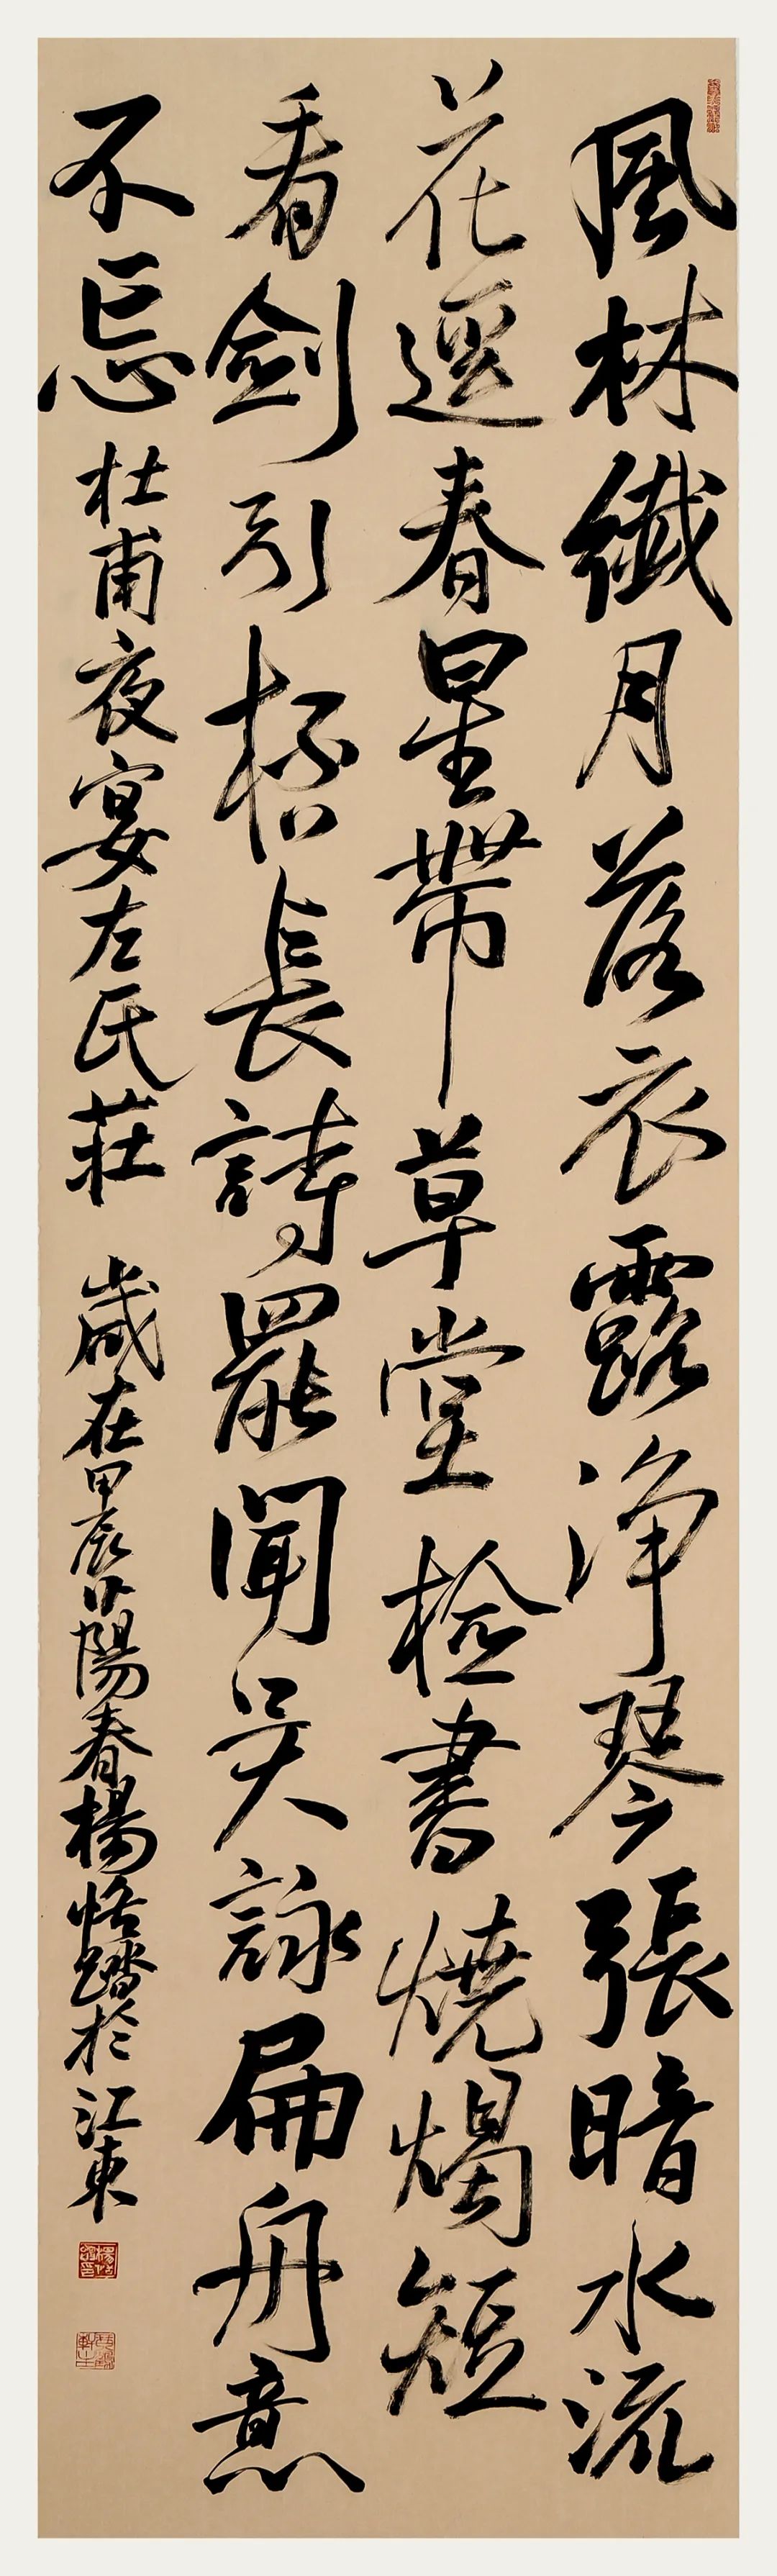 風林纖月落衣露淨琴張暗水流
花逕春星帶草堂檢書燒燭短
看劍引桮長詩罷聞吳詠扁舟意
不忘 杜甫夜宴左氏莊 歲在甲辰小陽春楊悟踏於江東